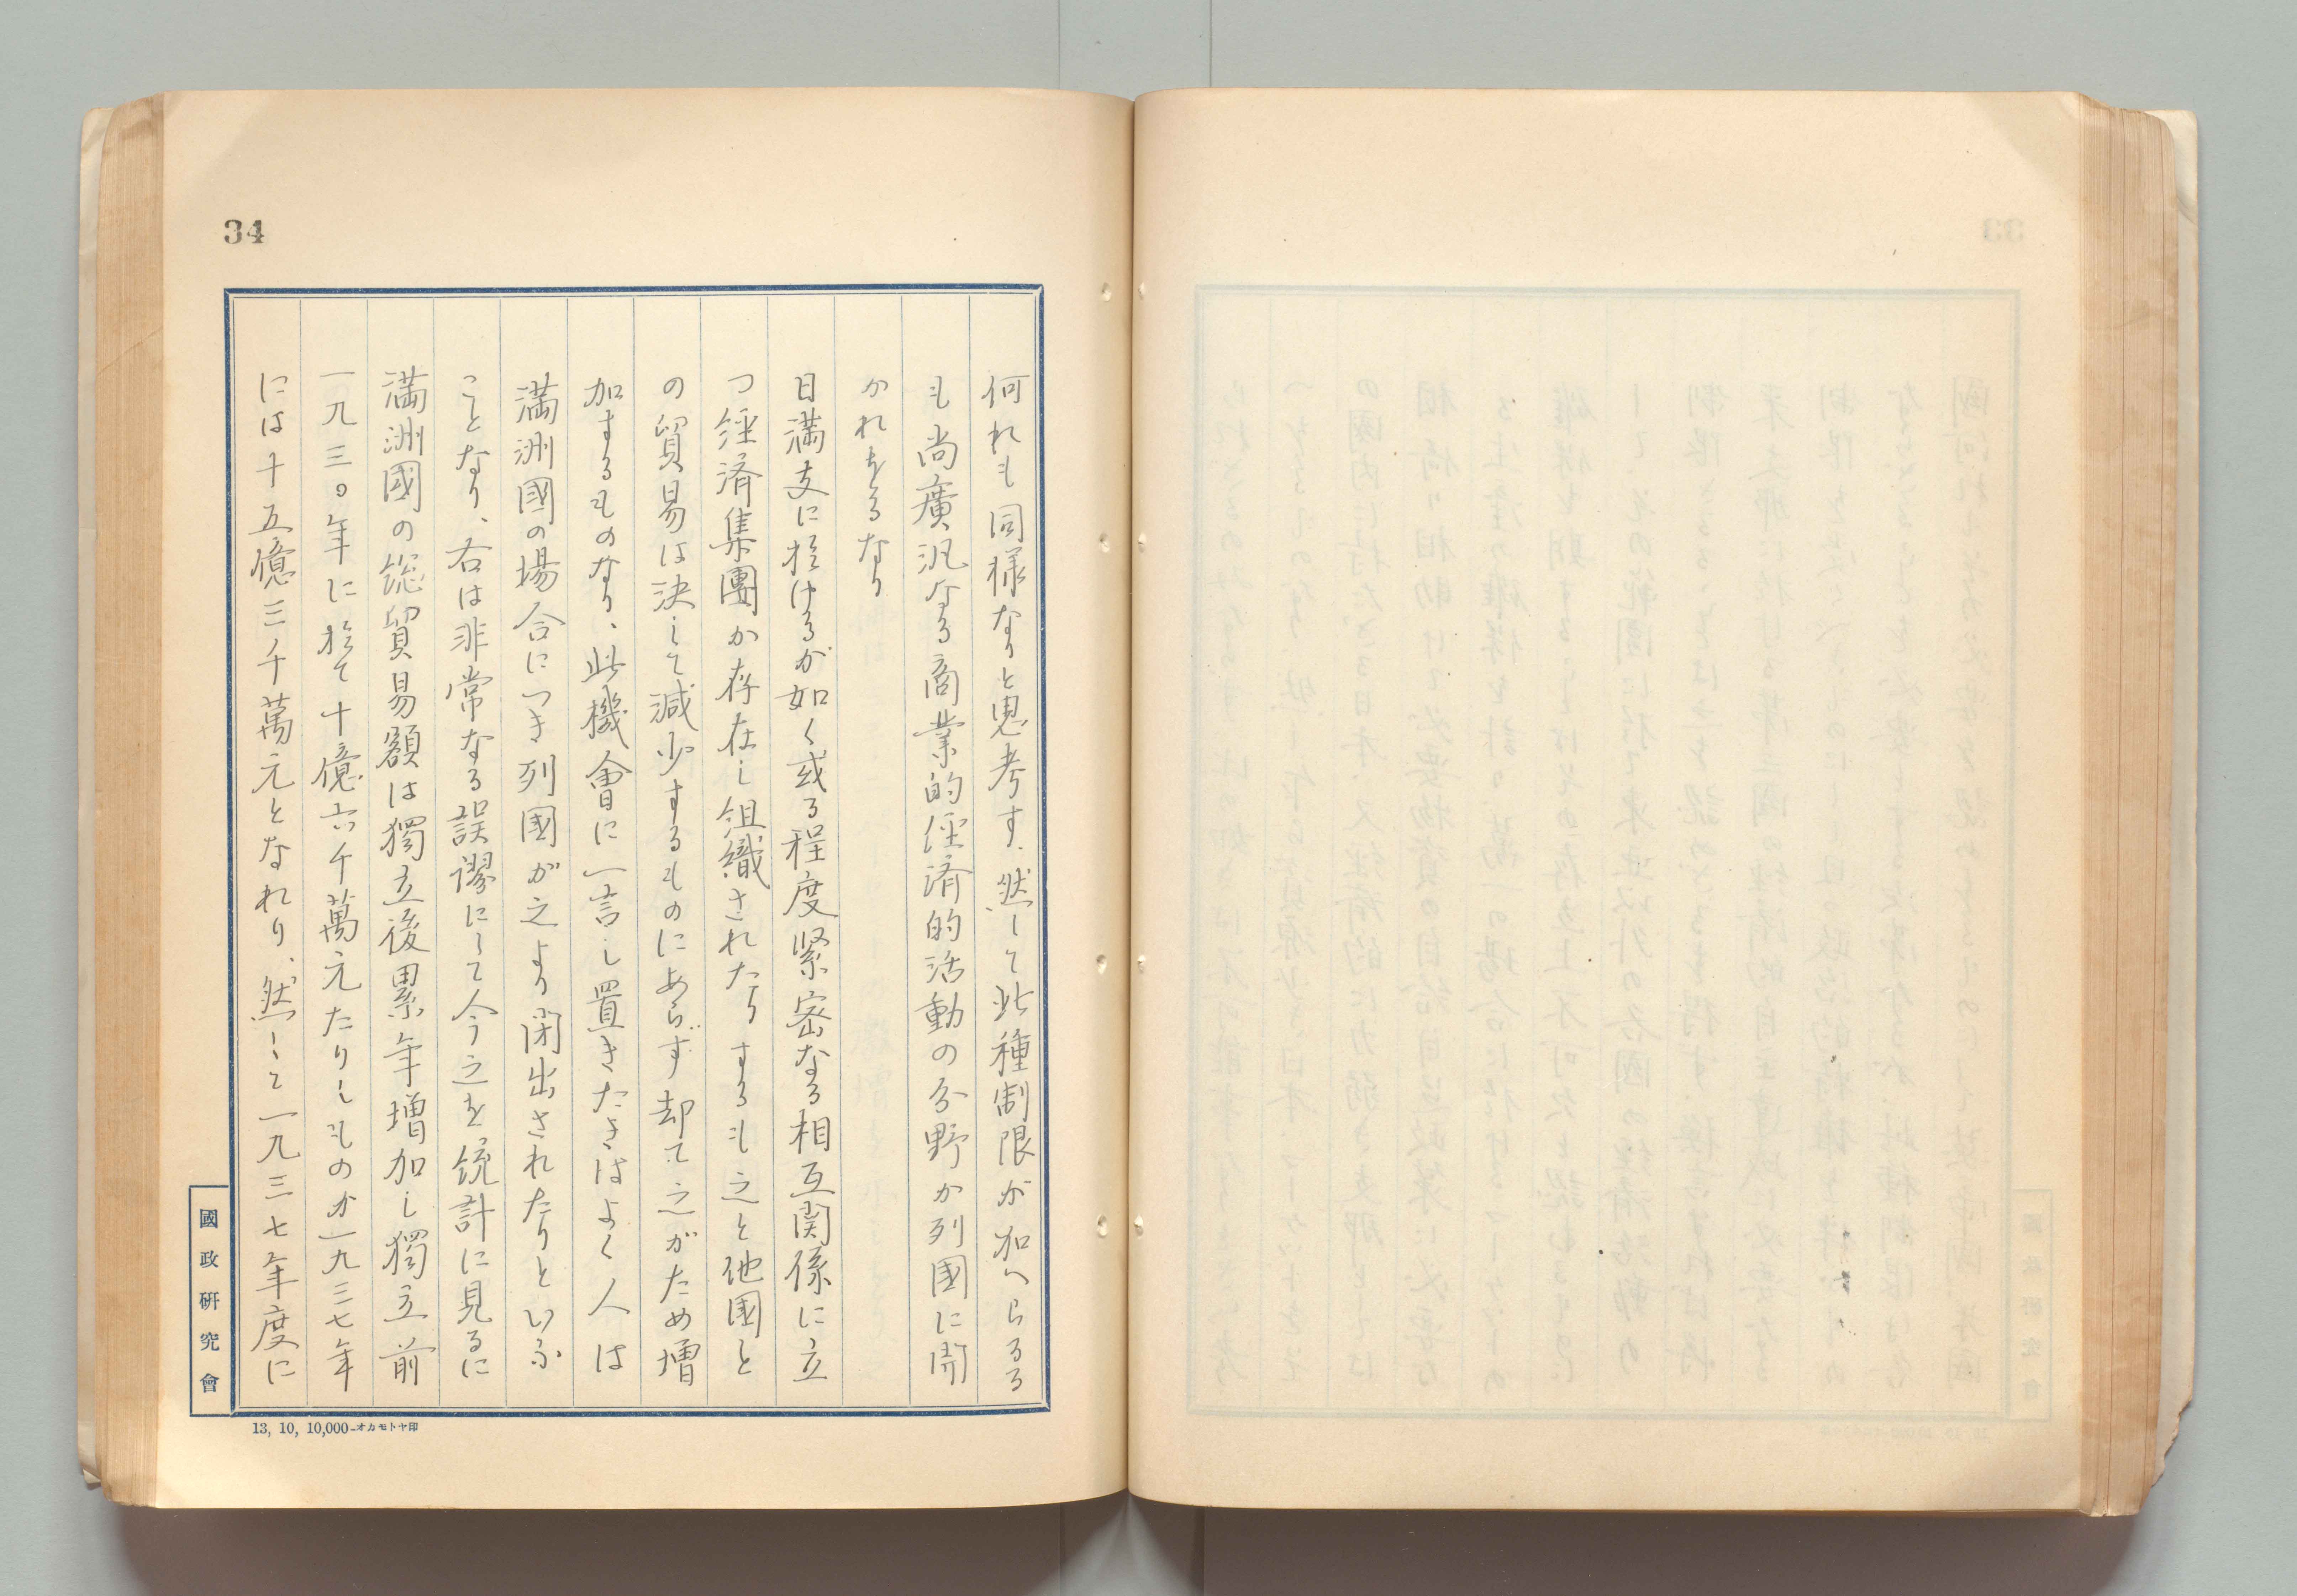 34
何れも同様なりと思考す、然して此種制限が加へらるる
も尚廣汎なる商業的経済的活動の分野か列國に開
かれをるなり
日満支に於けるが如く或る程度緊密なる相互関係に立
つ経済集團か存在し組織されたりするも之と他國と
の貿易は決して減少するものにあらず却て之がため増
加するものなり、此機會に一言し置きたきはよく人は
満洲國の場合につき列國が之より閉出されたりといふ
ことなり、右は非常なる誤謬にして今之を統計に見るに
満洲國の総貿易額は獨立後累年増加し獨立前
一九三〇年に於て十億六千萬元たりしものか一九三七年
には十五億三千萬元となれり、然して一九三七年度に
國政研究會
13, 10, 10,000-オカモトヤ印